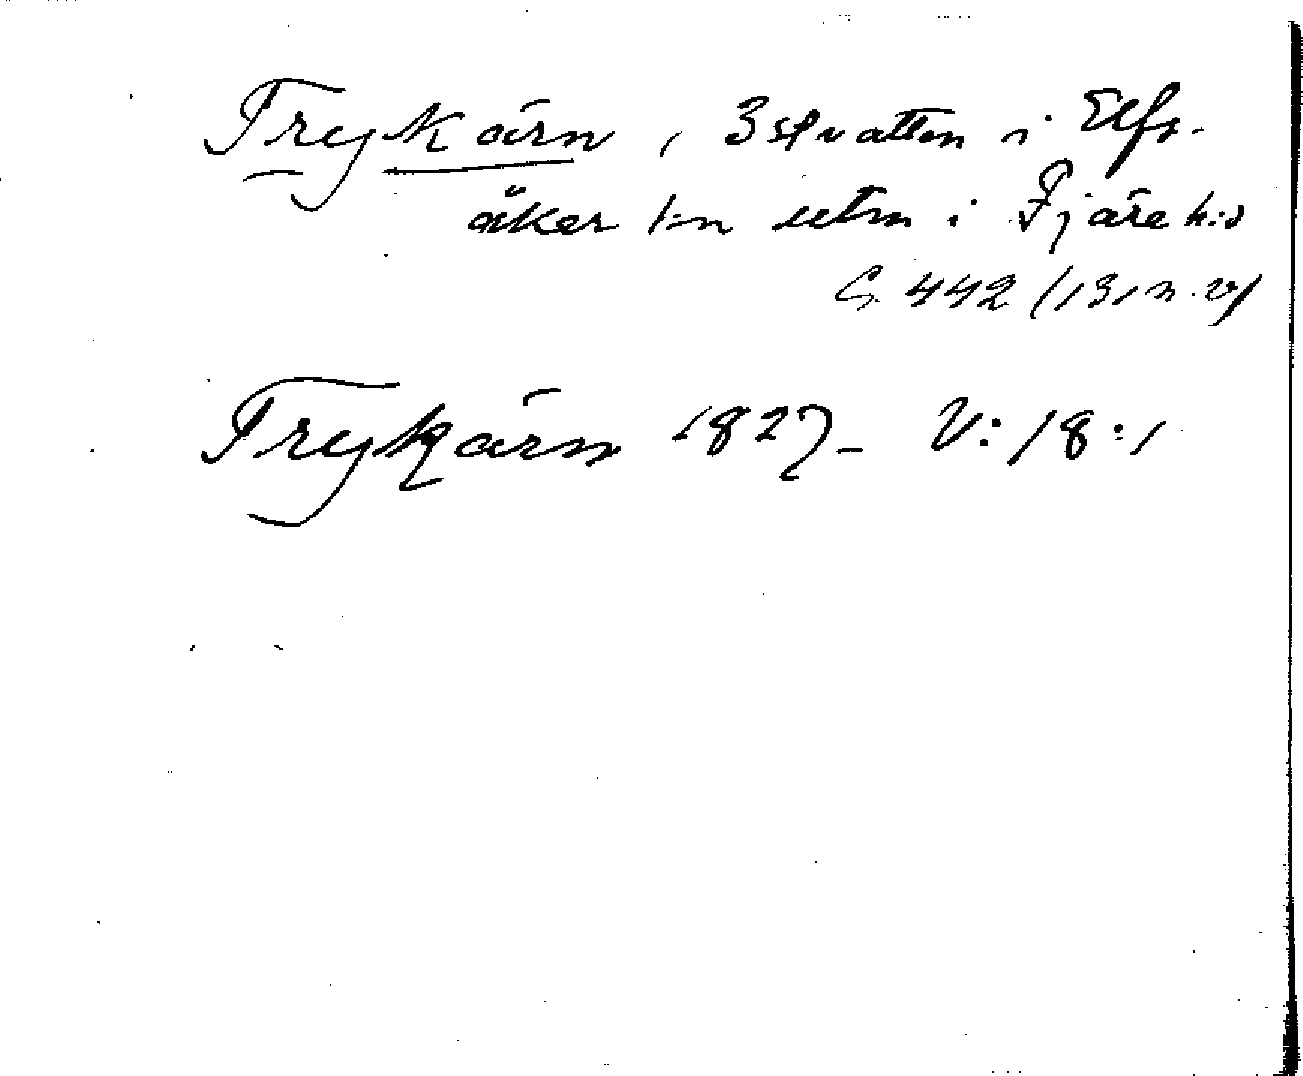 Trykärn, 3 st vatten i Elfs-
åker s:n utm i Fjäre h:d
G. 442 (13, n. v)
Trykärn 1827 – V: 18:1